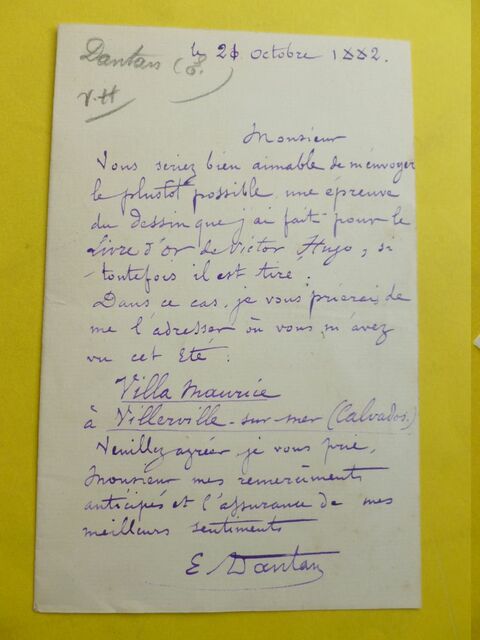 Dantan (E.)
V.H
le 21 Octobre 1882.
Monsieur
Vous seriez bien aimable de m'envoyer
le plustôt possible, une épreuve
du dessin que j'ai fait pour le
Livre d'or de Victor Hugo, si
toutefois il est tiré.
Dans ce cas, je vous prierai de
me l'adresser où vous m'avez
vu cet Eté:
Villa Maurice
à Villerville-sur-mer (Calvados.)
Veuillez agréer, je vous prie,
Monsieur mes remerciments
anticipés et l'assurance de mes
meilleurs sentiments
E Dantan